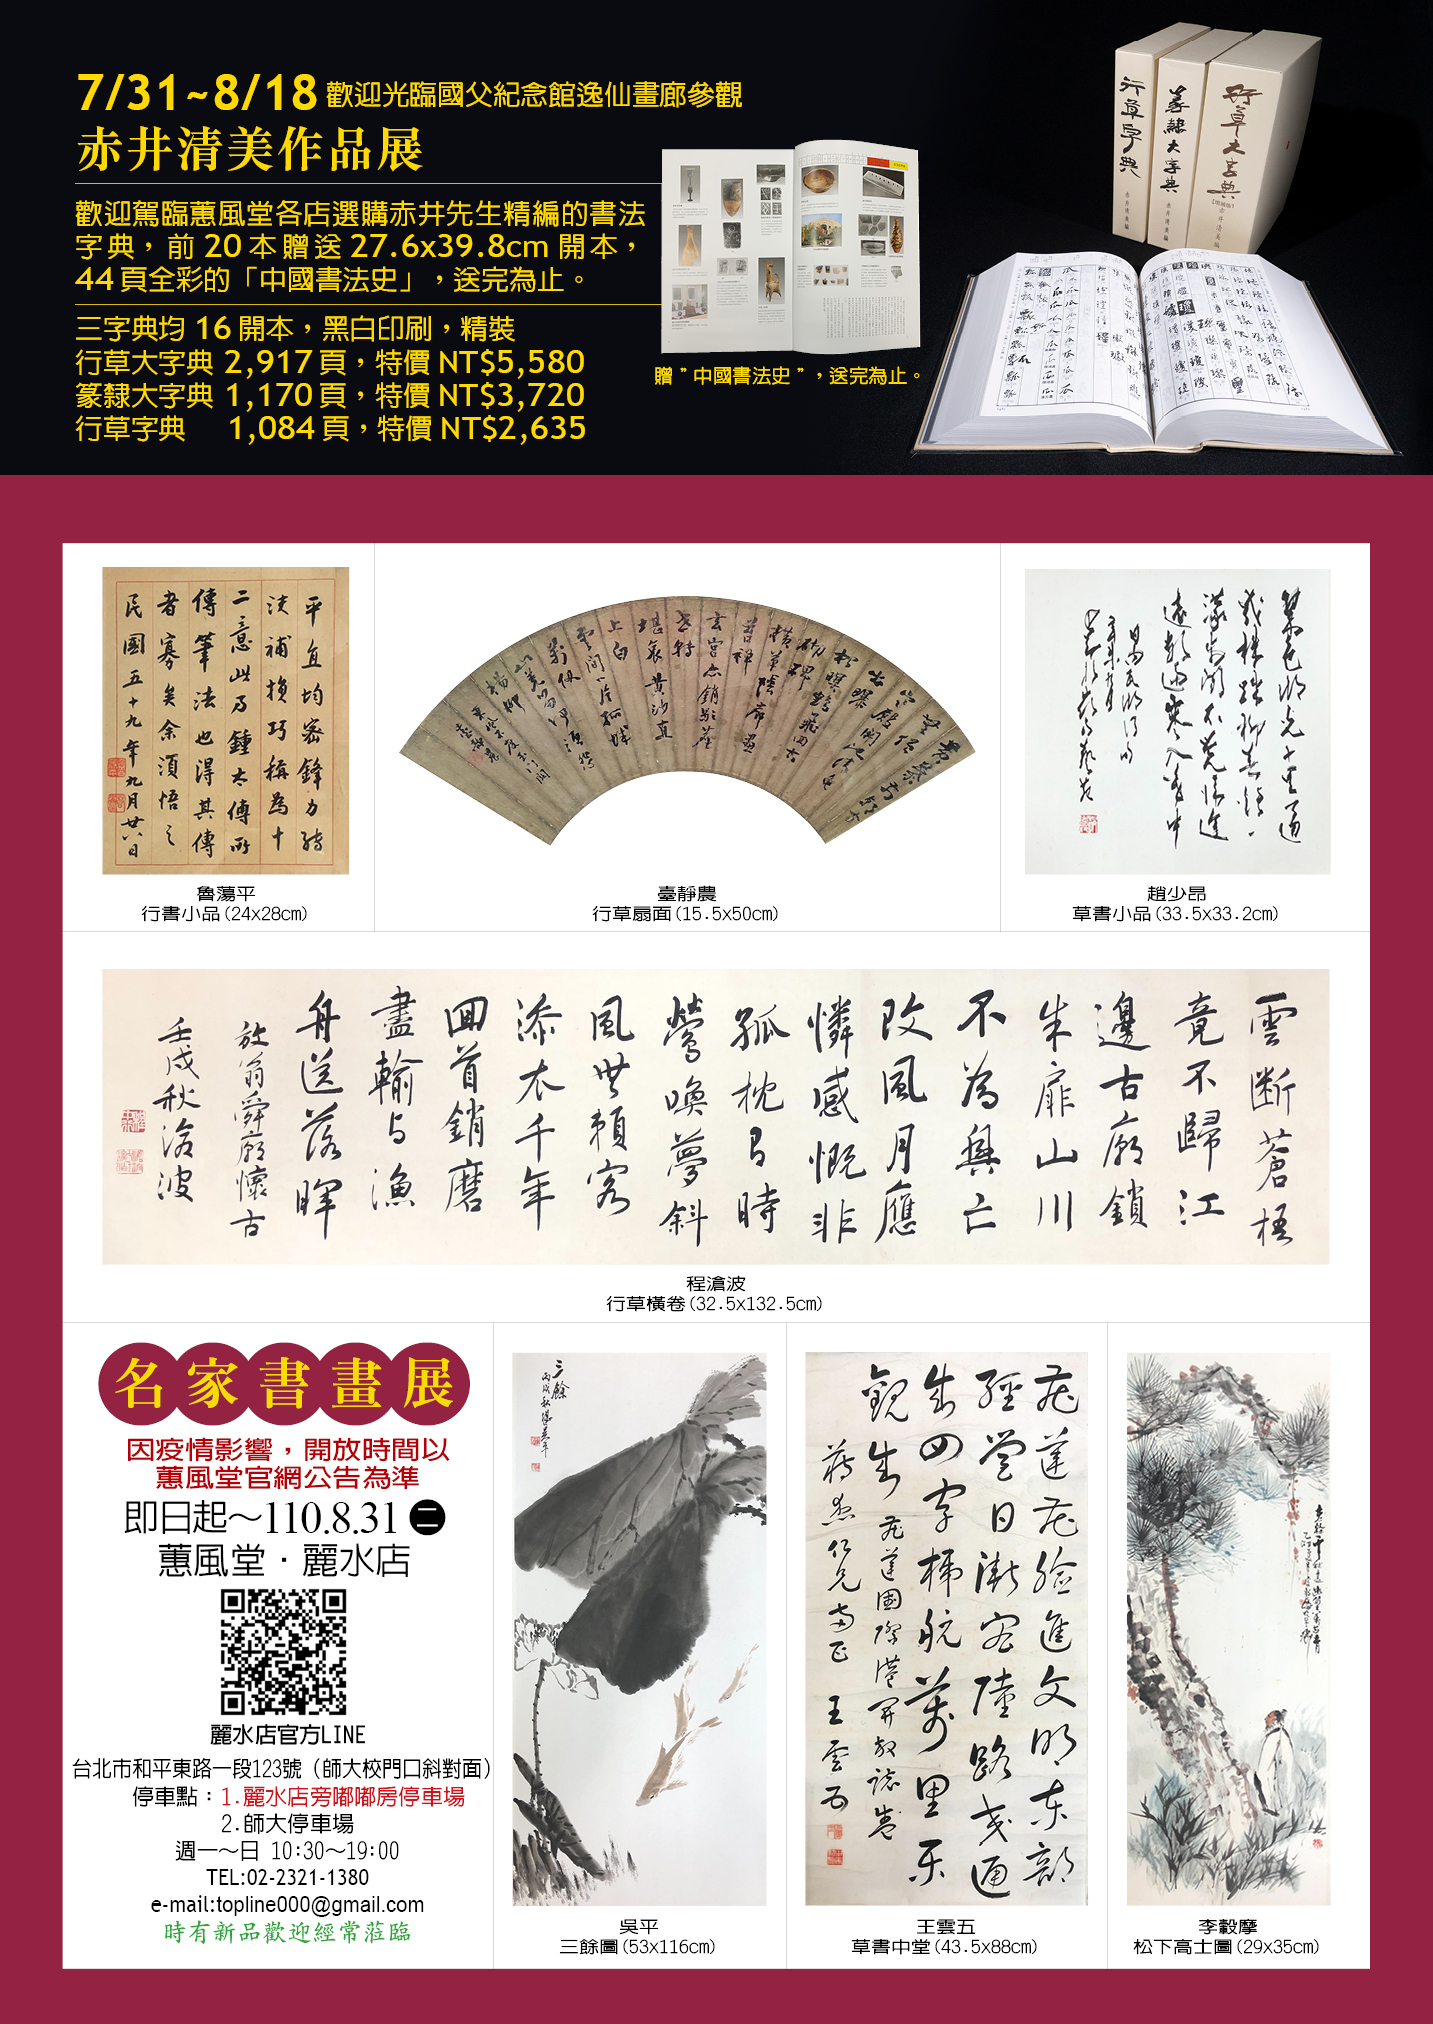 7/31~8/18 歡迎光臨國父紀念館逸仙畫廊參觀
赤井清美作品展
歡迎駕臨蕙風堂各店選購赤井先生精編的書法
字典，前 20 本贈送 27.6x39.8cm 開本，
44 頁全彩的「中國書法史」，送完為止。
三字典均 16 開本，黑白印刷，精裝
行草大字典 2,917 頁，特價 NT$5,580
篆隸大字典 1,170 頁，特價 NT$3,720
行草字典 1,084 頁，特價 NT$2,635
贈 ”中國書法史”，送完為止。
行草字典
赤井清美編
篆隸大字典
赤井清美編
行草大字典
赤井清美編
平直均密鋒力轉
決補損巧稱為十
二意此乃鍾太傅所
傳筆法也得其傳
者寡矣余須悟之
民國五十九年九月廿八日
魯蕩平
行書小品(24x28cm)
臺靜農
行草扇面(15.5x50cm)
趙少昂
草書小品(33.5x33.2cm)
雲斷蒼梧
竟不歸江
邊古廟鎖
朱扉山川
不為興亡
改風月應
憐感慨非
孤枕有時
鶯喚夢斜
風無賴客
添衣千年
回首銷磨
盡輸與漁
舟送落暉
放翁舜廟懷古
壬戌秋滄波
程滄波
行草橫卷(32.5x132.5cm)
名家書畫展
因疫情影響，開放時間以
蕙風堂官網公告為準
即日起～110.8.31 二
蕙風堂．麗水店
麗水店官方LINE
台北市和平東路一段123號（師大校門口斜對面）
停車點：1.麗水店旁嘟嘟房停車場
2.師大停車場
週一～日 10:30～19:00
TEL:02-2321-1380
e-mail:topline000@gmail.com
時有新品歡迎經常蒞臨
三餘
丙戌秋
吳平
三餘圖(53x116cm)
花蓮花險進文明東部
經營日漸密陸路交通
朱四字梯航萬里樂
觀朱
花蓮國際港開啟誌盛
王雲五
王雲五
草書中堂(43.5x88cm)
李轂摩
松下高士圖(29x35cm)